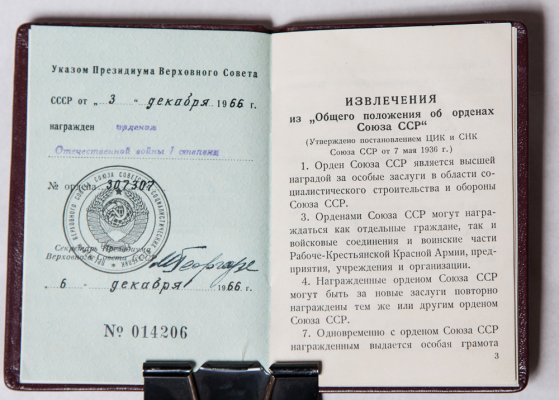 Указом Президиума Верховного Совета
СССР от „ 3 “ декабря 1966 г.
награжден орденом
Отечественной войны I степени
№ ордена 307307
Секретарь Президиума
Верховного Совета СССР
„ 6 “ декабря 1966 г.
№ 014206
ИЗВЛЕЧЕНИЯ
из „Общего положения об орденах
Союза ССР“
(Утверждено постановлением ЦИК и СНК
Союза ССР от 7 мая 1936 г.)
1. Орден Союза ССР является высшей
наградой за особые заслуги в области со-
циалистического строительства и обороны
Союза ССР.
3. Орденами Союза ССР могут награ-
ждаться как отдельные граждане, так и
войсковые соединения и воинские части
Рабоче-Крестьянской Красной Армии, пред-
приятия, учреждения и организации.
4. Награжденные орденом Союза ССР
могут быть за новые заслуги повторно
награждены тем же или другим орденом
Союза ССР.
7. Одновременно с орденом Союза ССР
награжденным выдается особая грамота
3